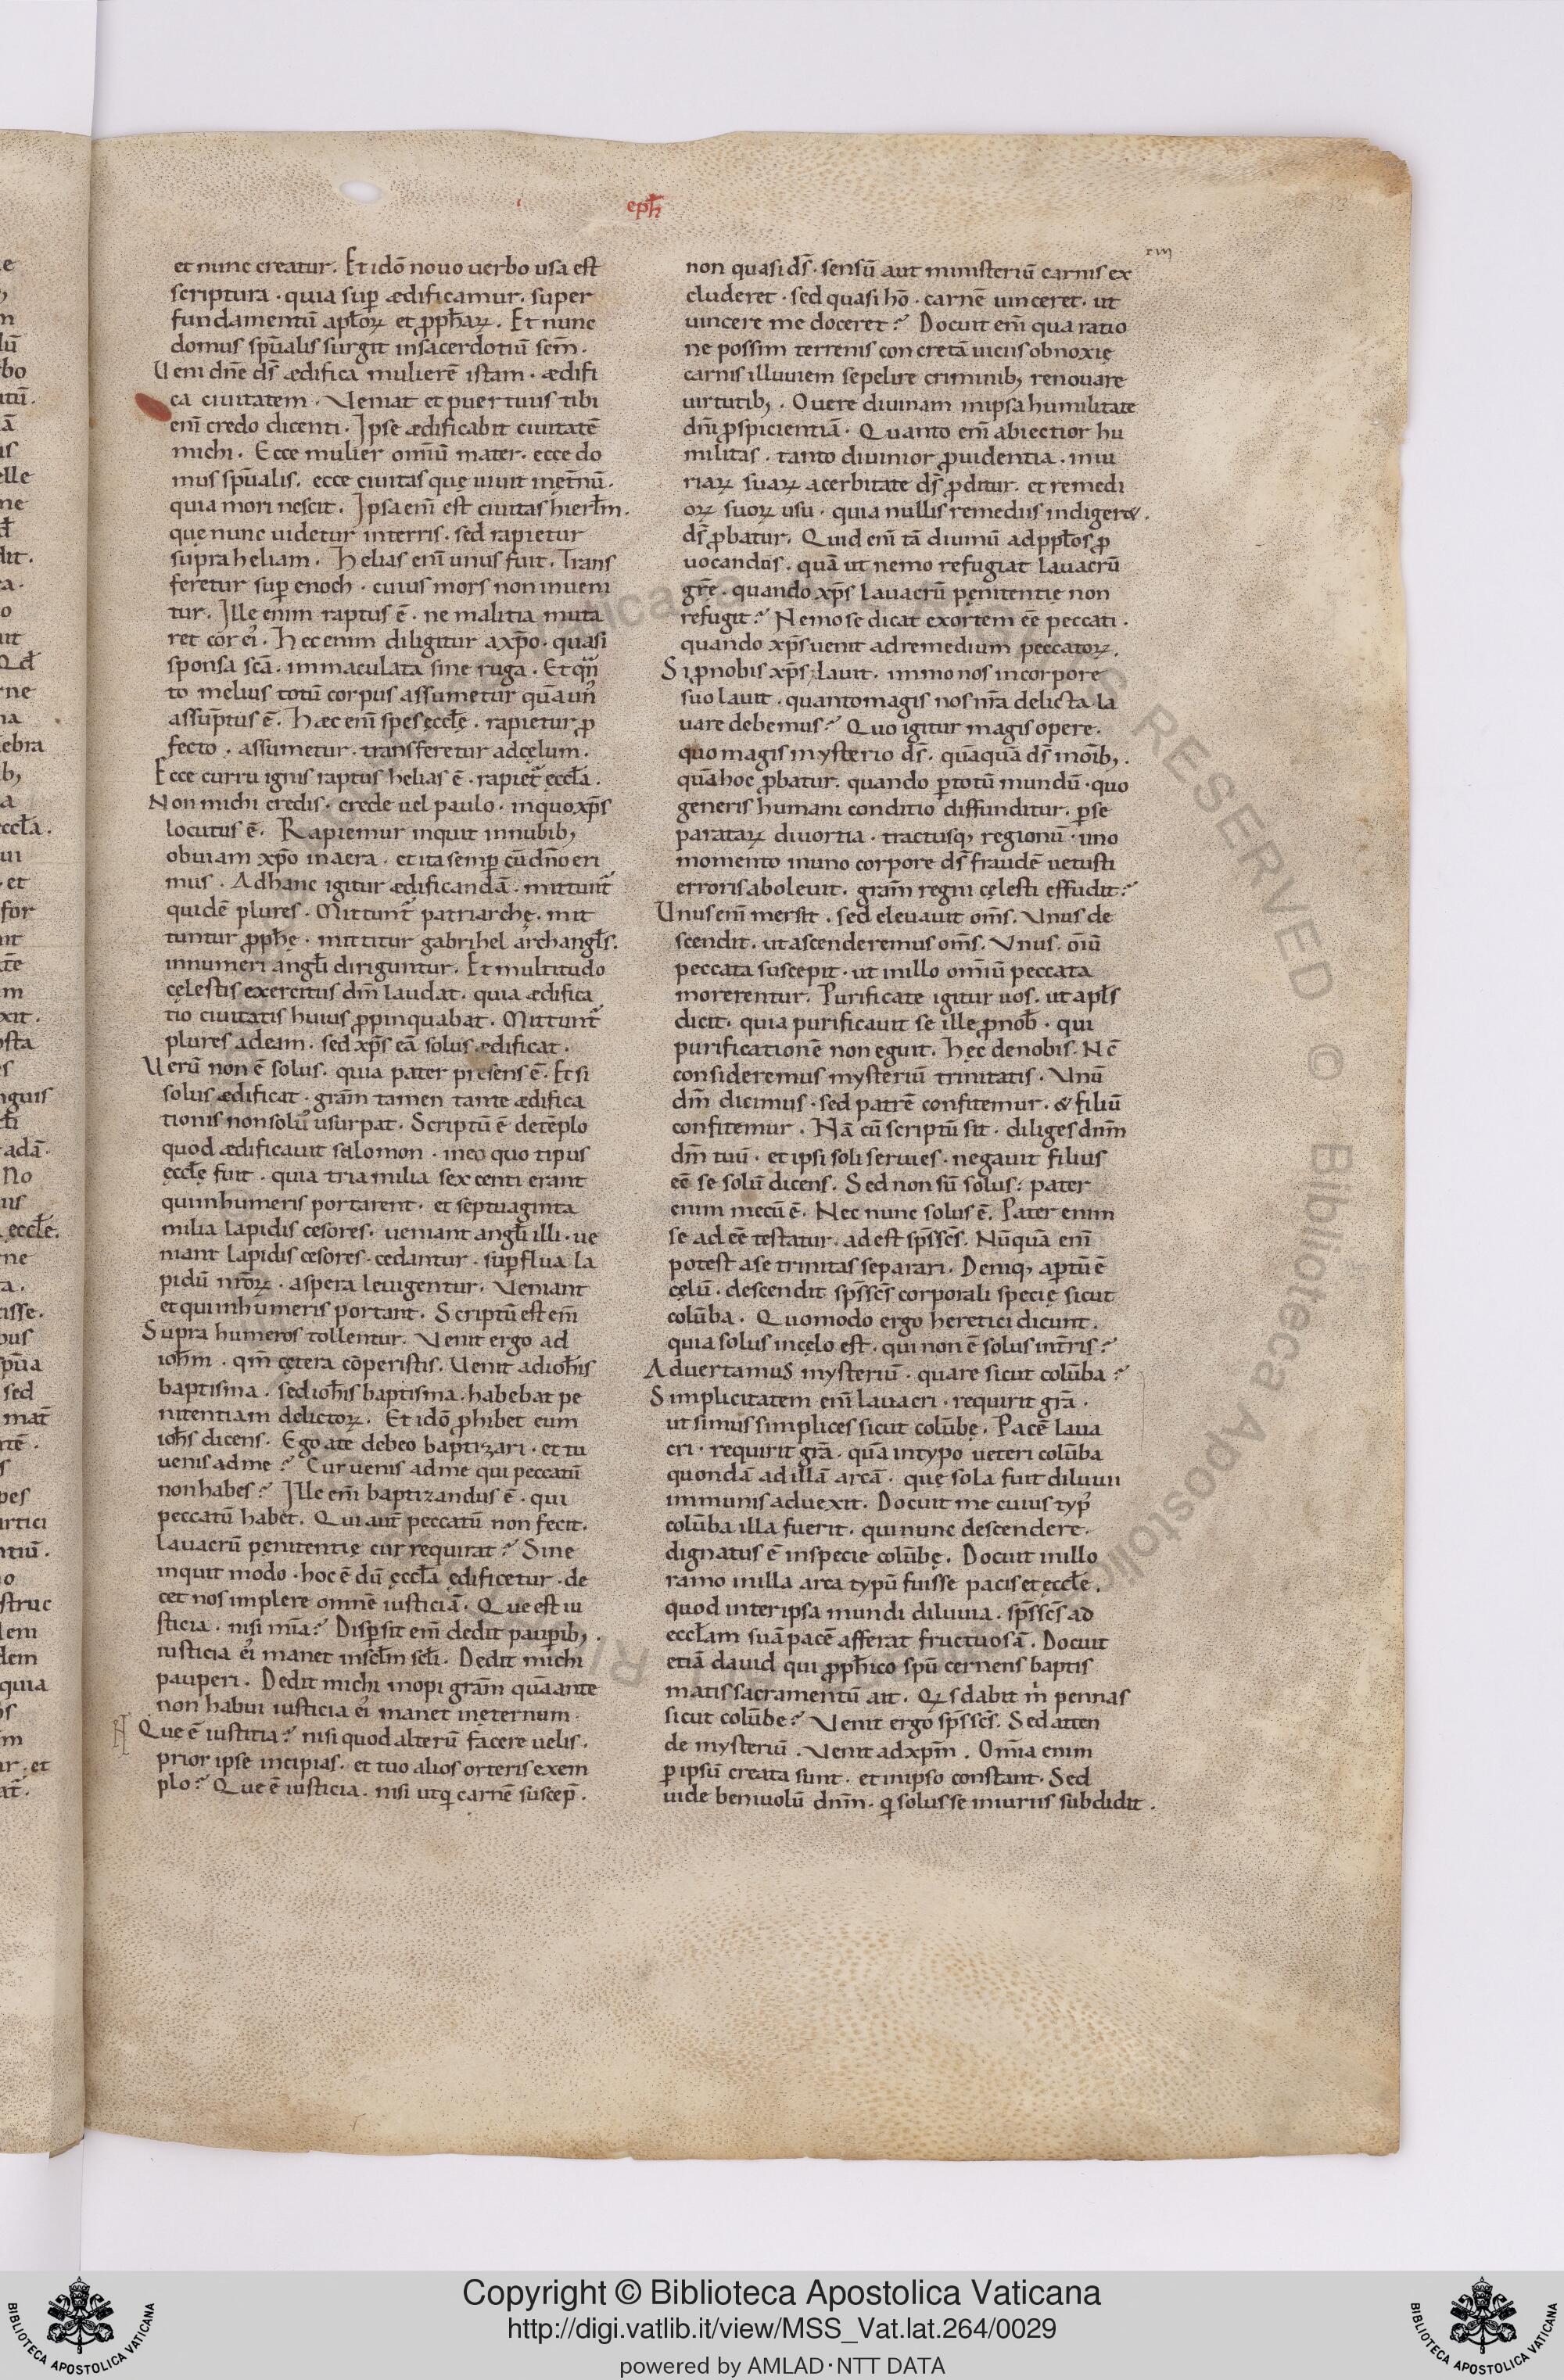 eph̄
xiii
et nunc creatur. Et idō nouo uerbo usa est
scriptura · quia suꝑ ædificamur. super
fundamentū apƚoꝝ et ꝓph̄aꝝ. Et nunc
domus spūalis surgit insacerdotiū scm̄.
Ueni dn̄e ds̄ ædifica mulierē istam · ædifi
ca ciuitatem. Veniat et puer tuus tibi
eni̅ credo dicenti. Ipse ædificabit ciuitatē
michi. Ecce mulier omiū mater. ecce do
mus spūalis. ecce ciuitas quę uiuit inęt̄nū.
quia mori nescit. Ipsa eni̅ est ciuitas hierƚm.
que nunc uidetur interris. sed rapietur
supra heliam. Helias eni̅ unus fuit. Trans
feretur suꝑ enoch · cuius mors non inueni
tur. Ille enim raptus ē. ne malitia muta
ret cor ei. Hec enim diligitur axp̄o. quasi
sponsa scā. immaculata sine ruga. Et qn̄
to melius totū corpus assumetur quā un̄
assūptus ē. Hæc eni̅ spes eccƚę. rapietur ꝓ
fecto. assumetur. transferetur adcęlum.
Ecce curru ignis raptus helias ē. rapiet᷑ eccƚa.
Non michi credis. crede uel paulo. inquo xp̄s
locutus ē. Rapiemur inquit innubib;
obuiam xp̄o inaera. et ita semꝑ cū dn̄o eri
mus. Adhanc igitur ædificandā. mittunt᷑
quidē plures. Mittunt᷑ patriarchę. mit
tuntur ꝓph̄ę. mittitur gabrihel archangƚs.
innumeri angƚi diriguntur. Et multitudo
cęlestis exercitus dm̄ laudat. quia ædifica
tio ciuitatis huius ꝓpinquabat. Mittunt᷑
plures adeam. sed xp̄s eā solus ædificat.
Uerū non ē solus. quia pater presens ē. Et si
solus ædificat. gram̄ tamen tante ædifica
tionis nonsolus usurpat. Scriptū ē detēplo
quod ædificauit salomon. ineo quo tipus
eccƚę fuit. quia tria milia sexcenti erant
quiinhumeris portarent. et septuaginta
milia lapidis cesores. ueniant angƚi illi. ue
niant lapidis cesores. cedantur. suꝑflua la
pidū nr̄oꝝ. aspera leuigentur. Veniant
et quiinhumeris portant. Scriptū est eni̅
Supra humeros tollentur. Venit ergo ad
ioh̄m. qm̄ cętera cōperistis. Uenit adioh̄is
baptisma. sedioh̄is baptisma. habebat pe
nitentiam delictoꝝ. Et idō ꝓhibet eum
ioh̄s dicens. Ego ate debeo baptizari. et tu
uenis adme? Cur uenis adme qui peccatū
nonhabes? Ille eni̅ baptizandus ē. qui
peccatū habet. Qui aut̄ peccatū non fecit.
lauacrū penitentię cur requirat? Sine
inquit modo. hoc ē dū eccƚa ędificetur. de
cet nos implere omnē iusticiā. Que est iu
sticia. nisi mi̅a? Disꝑsit eni̅ dedit pauꝑib;.
iusticia ei᷒ manet inscƚm scƚi. Dedit michi
pauperi. Dedit michi inopi gram̄ quā ante
non habui iusticia ei᷒ manet inęternum.
Que ē iustitia? nisi quod alterū facere uelis.
prior ipse incipias. et tuo alios orteris exem
plo? Que ē iusticia. nisi utqi carnē suscep̄.
non quasi ds̄. sensū aut ministeriū carnis ex
cluderet. sed quasi hō. carnē uinceret. ut
uincere me doceret? Docuit eni̅ qua ratio
ne possim terrenis concretā uiciis obnoxię
carnis illuuiem sepelire criminib; renouare
uirtutib;. O uere diuinam inipsa humilitate
dm̄i ꝓspicientiā. Quanto eni̅ abiectior hu
militas. tanto diuinior ꝓuidentia. iniu
riaꝝ suaꝝ acerbitate ds̄ ꝓditur. et remedi
oꝝ suoꝝ usu. quia nullis remediis indiger&.
ds̄ ꝓbatur. Quid eni̅ tā diuinū adppƚos ꝓ
uocandus. quā ut nemo refugiat lauacrū
gr̄e. quando xp̄s lauacrū penitentię non
refugit? Nemo se dicat exortem eē peccati.
quando xp̄s uenit adremedium peccatoꝝ.
Si ꝓnobis xp̄s lauit. immo nos incorpore
suo lauit. quantomagis nos nr̄a delicta la
uare debemus? Quo igitur magis opere.
quo magis mysterio ds̄. quāquā ds̄ inoi̅b;.
quā hoc ꝓbatur. quando ꝑ totū mundū. quo
generis humani conditio diffunditur. ꝑ se
parataꝝ diuortia. tractusq; regionū. uno
momento inuno corpore ds̄ fraudē uetusti
erroris aboleuit. gram̄ regni cęlesti effudit?
Unus eni̅ mersit. sed eleuauit om̄s. Vnus de
scendit. ut ascenderemus om̄s. Vnus. oi̅ū
peccata suscepit. ut inillo omiū peccata
morerentur. Purificate igitur uos. ut apƚs
dicit. quia purificauit se ille ꝓnob̄. qui
purificationē non eguit. Hęc denobis. Nc̄
consideremus mysteriū trinitatis. Vnū
dm̄ dicimus. sed patrē confitemur. & filiū
confitemur. Nā cū scriptū sit. diliges dnm̄
dm̄ tuū. et ipsi soli seruies. negauit filius
eē se solū dicens. Sed non sū solus. pater
enim mecū ē. Nec nunc solus ē. Pater enim
se ad eē testatur. ad est sps̄ scs̄. Nūquā eni̅
potest ase trinitas separari. Deniq; aꝑtū ē
cęlū. descendit sps̄ scs̄ corporali specię sicut
colūba. Quomodo ergo heretici dicunt.
quia solus incęlo est. qui non ē solus int̄ris?
Aduertamus mysteriū. quare sicut colūba?
Simplicitatem eni̅ lauacri. requirit gr̄a.
ut simus simplices sicut colūbę. Pacē laua
cri. requirit gr̄a. quā intypo ueteri colūba
quondā adillā arcā. quę sola fuit diluuii
immunis aduexit. Docuit me cuius typ᷒
colūba illa fuerit. qui nunc descendere.
dignatus ē inspecie colūbę. Docuit inillo
ramo inilla arca typū fuisse pacis et eccƚe.
quod interipsa mundi diluuia. sps̄ scs̄ ad
eccƚam suā pacē afferat fructuosā. Docuit
etiā dauid qui ꝓph̄ico spū cernens baptis
matis sacramentū ait. Qis dabit m̄ pennas
sicut colūbe? Venit ergo sps̄ scs̄. Sed atten
de mysteriū. Venit adxpm̄. Omi̅a enim
ꝑ ipsū creata sunt. et inipso constant. Sed
uide beniuolū dnm̄. qi solus se iniuriis subdidit.
Copyright © Biblioteca Apostolica Vaticana
http://digi.vatlib.it/view/MSS_Vat.lat.264/0029
powered by AMLAD·NTT DATA